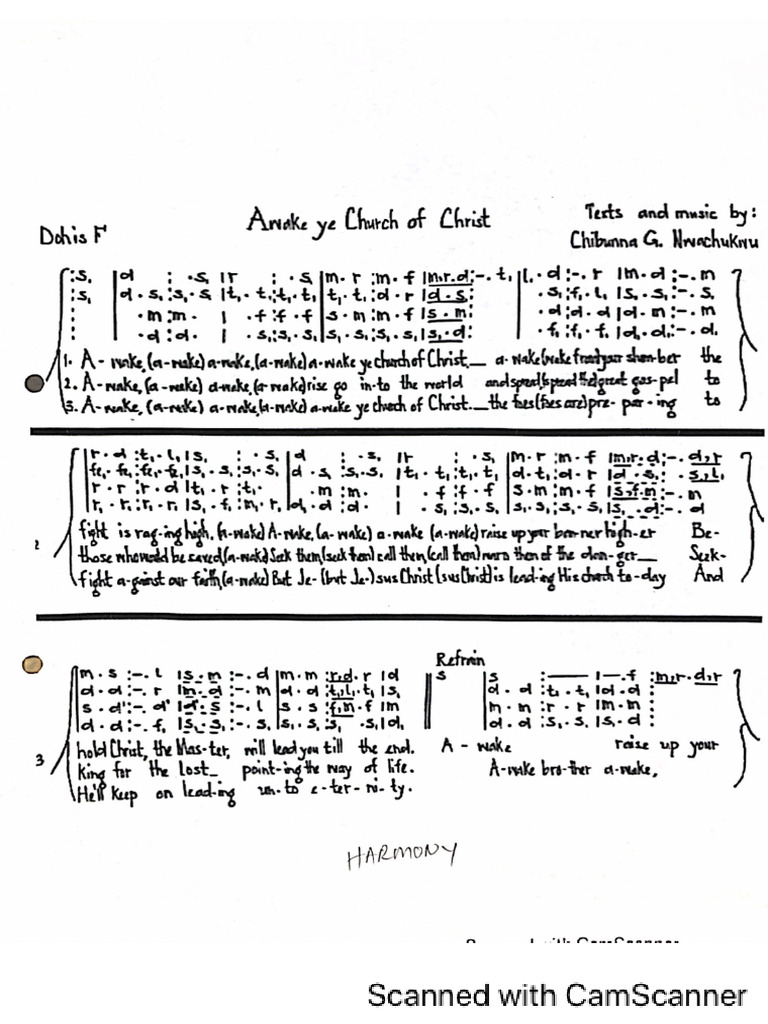 Awake ye Church of Christ
Doh is F
Texts and music by:
Chibunna G. Nwachukwu
:s, |d : .s, |r : .s |m.r :m.f |m.r.d:-.t, |l,.d:-.r |m.d:-.m
:s, |d.s, :s,.s |t,.t, :t,.t, |t,.t, :d.r |d.s: |.s, :f,.l, |s,.s, :-.s,
: |.m :m. | .f :f.f |s.m :m.f |s.m: |.d :d.d |d.m :-.m
: |.d :d. | .s, :s,.s, |s,.s, :s,.s, |s,.d: |.f, :f,.f, |d.d, :-.d,
1. A- wake, (a-wake) a-wake, (a-wake) a-wake ye church of Christ__ a-wake (wake from) your slum-ber the
2. A-wake, (a-wake) a-wake, (a-wake) rise go in-to the world and spread (spread the) great gos-pel to
3. A-wake, (a-wake) a-wake, (a-wake) a-wake ye church of Christ.__ the foes (foes are) pre-par-ing to
2
|r.d :t,.l, |s, : .s, |d : .s, |r : .s, |m.r :m.f |m.r.d:-.d,r
fe,.fe, :fe,.fe, |s,.s, :s,.s, |d.s, :s,.s, |t,.t, :t,.t, |d.t, :d.r |d.s,: .s,l,
r.r :r.d |t,.r :t,. | .m :m. | .f :f.f |s.m :m.f |s.f.m:-.m
r,.r, :r,.r, |s,.f, :m,.r, |d,.d :d. | .s, :s,.s, |s,.s, :s,.s, |s,.d:-.d
fight is rag-ing high, (a-wake) A-wake, (a-wake) a-wake (a-wake) raise up your ban-ner high-er Be-
those who would be saved, (a-wake) Seek them (seek them) call them, (call them) warn them of the dan-ger__ Seek-
fight a-gainst our faith, (a-wake) But Je- (but Je-) sus Christ (sus Christ) is lead-ing His church to-day And
3
Refrain
m.s :-.l |s.m :-.d |m.m :r.d.r |d || s |s :— |-.f :m.r.d.r
d.d :-.r |m.d :-.m |d.d :t,.l,.t, |s, || |d.d :t,.t, |d.d :
s.d' :-.d' |d'.s :-.l |s.s :f.m.f |m || |m.m :r.r |m.m :
d.d :-.f, |s,.s, :-.s, |s,.s, :s, .s, |d, || |d.d :s,.s, |s,.d :
hold Christ, the Mas-ter, will lead you till the end. A - wake raise up your
king for the Lost__ point-ing the way of life. A-wake bro-ther a-wake,
He'll keep on lead-ing un-to e-ter-ni-ty.
HARMONY
Scanned with CamScanner
Scanned with CamScanner